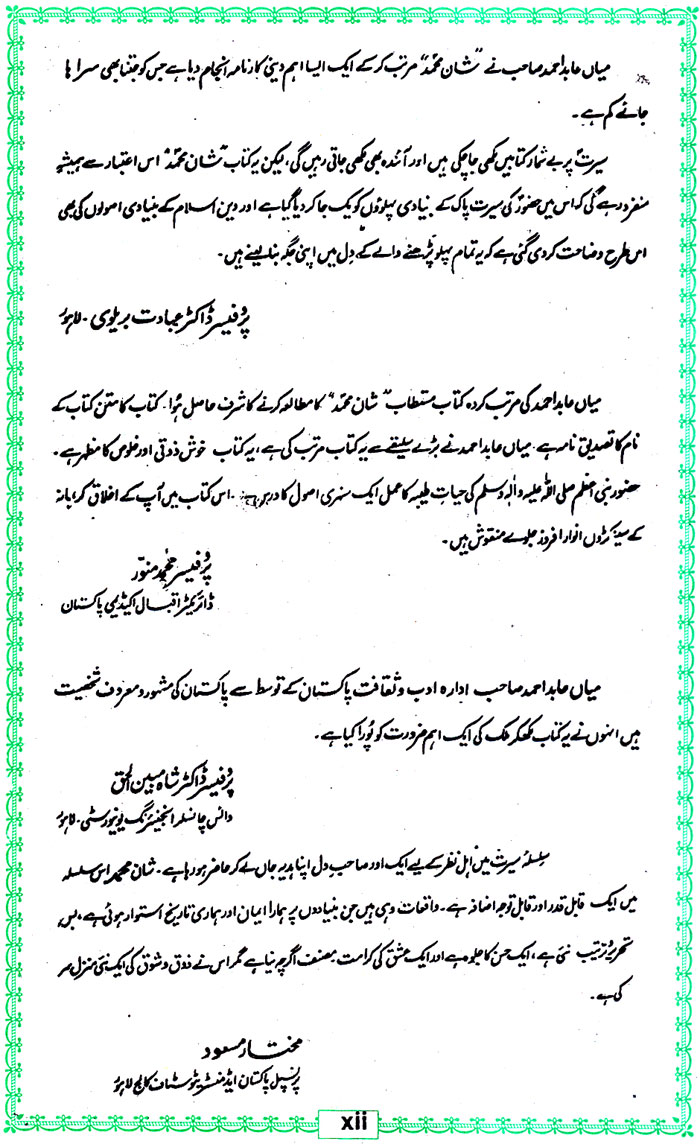 میاں عابد احمد صاحب نے "شان محمدؐ" مرتب کر کے ایک ایسا اہم دینی کارنامہ انجام دیا ہے جس کو جتنا بھی سراہا
جائے کم ہے۔
سیرتؐ پر بے شمار کتابیں لکھی جا چکی ہیں اور آئندہ بھی لکھی جاتی رہیں گی، لیکن یہ کتاب "شان محمدؐ" اس اعتبار سے ہمیشہ
منفرد رہے گی کہ اس میں حضورؐ کی سیرت پاک کے بنیادی پہلوؤں کو یک جا کر دیا گیا ہے اور دین اسلام کے بنیادی اصولوں کی بھی
اس طرح وضاحت کر دی گئی ہے کہ یہ تمام پہلو پڑھنے والے کے دل میں اپنی جگہ بنا لیتے ہیں۔
پروفیسر ڈاکٹر عبادت بریلوی۔ لاہور
میاں عابد احمد کی مرتب کردہ کتاب مستطاب "شان محمدؐ" کا مطالعہ کرنے کا شرف حاصل ہُوا۔ کتاب کا متن کتاب کے
نام کا تصدیق نامہ ہے۔ میاں عابد احمد نے بڑے سلیقے سے یہ کتاب مرتب کی ہے، یہ کتاب خوش ذوقی اور خلوص کا مظہر ہے۔
حضور نبی اعظم صلی اللہ علیہ وآلہٖ وسلم کی حیات طیبہ کا عمل ایک سنہری اصول کا درس ہے۔ اس کتاب میں آپ کے اخلاق کریمانہ
کے سینکڑوں انوار افروز جلوے منقوش ہیں۔
پروفیسر محمد منور
ڈائریکٹر اقبال اکیڈیمی پاکستان
میاں عابد احمد صاحب ادارہ ادب و ثقافت پاکستان کے توسط سے پاکستان کی مشہور و معروف شخصیت
ہیں انہوں نے یہ کتاب لکھ کر ملک کی ایک اہم ضرورت کو پُورا کیا ہے۔
پروفیسر ڈاکٹر شاہ مبین الحق
وائس چانسلر انجینئرنگ یونیورسٹی۔ لاہور
سلسلۂ سیرت میں اہل نظر کے لیے ایک اور صاحب دل اپنا ہدیہ جاں لے کر حاضر ہو رہا ہے۔ شان محمد اس سلسلہ
میں ایک قابل قدر اور قابل توجہ اضافہ ہے۔ واقعات وہی ہیں جن بنیادوں پر ہمارا ایمان اور ہماری تاریخ استوار ہوئی ہے، بس
تحریر و ترتیب نئی ہے، ایک حسن کا جلوہ ہے اور ایک عشق کی کرامت مصنف اگرچہ نیا ہے مگر اس نے ذوق و شوق کی ایک نئی منزل سر
کی ہے۔
مختار مسعود
پرنسپل پاکستان ایڈمنسٹریٹو سٹاف کالج لاہور
xii